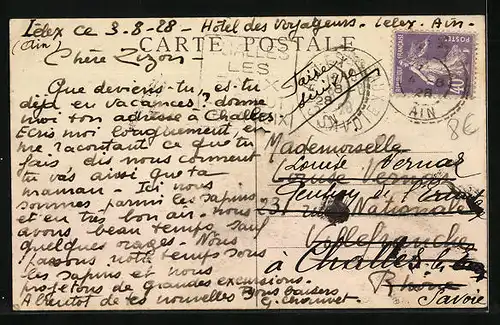 Lélex ce 3-8-28 - Hôtel des Voyageurs. Lelex. Ain.
(Ain)
CARTE POSTALE
Chère Zizon -
Que deviens-tu, es-tu
déjà en vacances? donne
moi ton adresse à Challes
Ecris moi longuement, en
me racontant ce que tu
fais dis nous comment
tu vas ainsi que ta
maman - Ici nous
sommes parmi les sapins
et en très bon air - nous
avons beau temps sauf
quelques orages - Nous
passons notre temps sous
les sapins et nous
projetons de grandes excursions.
A bientôt de tes nouvelles Bons baisers
LES
Faire
suivre
REPUBLIQUE FRANÇAISE
POSTES
40
28
AIN
8€
Mademoiselle
Louise Vernay
Louise Vernay
Pension
23 Nationale
Villefranche
à Challes les Eaux
Rhône
Savoie